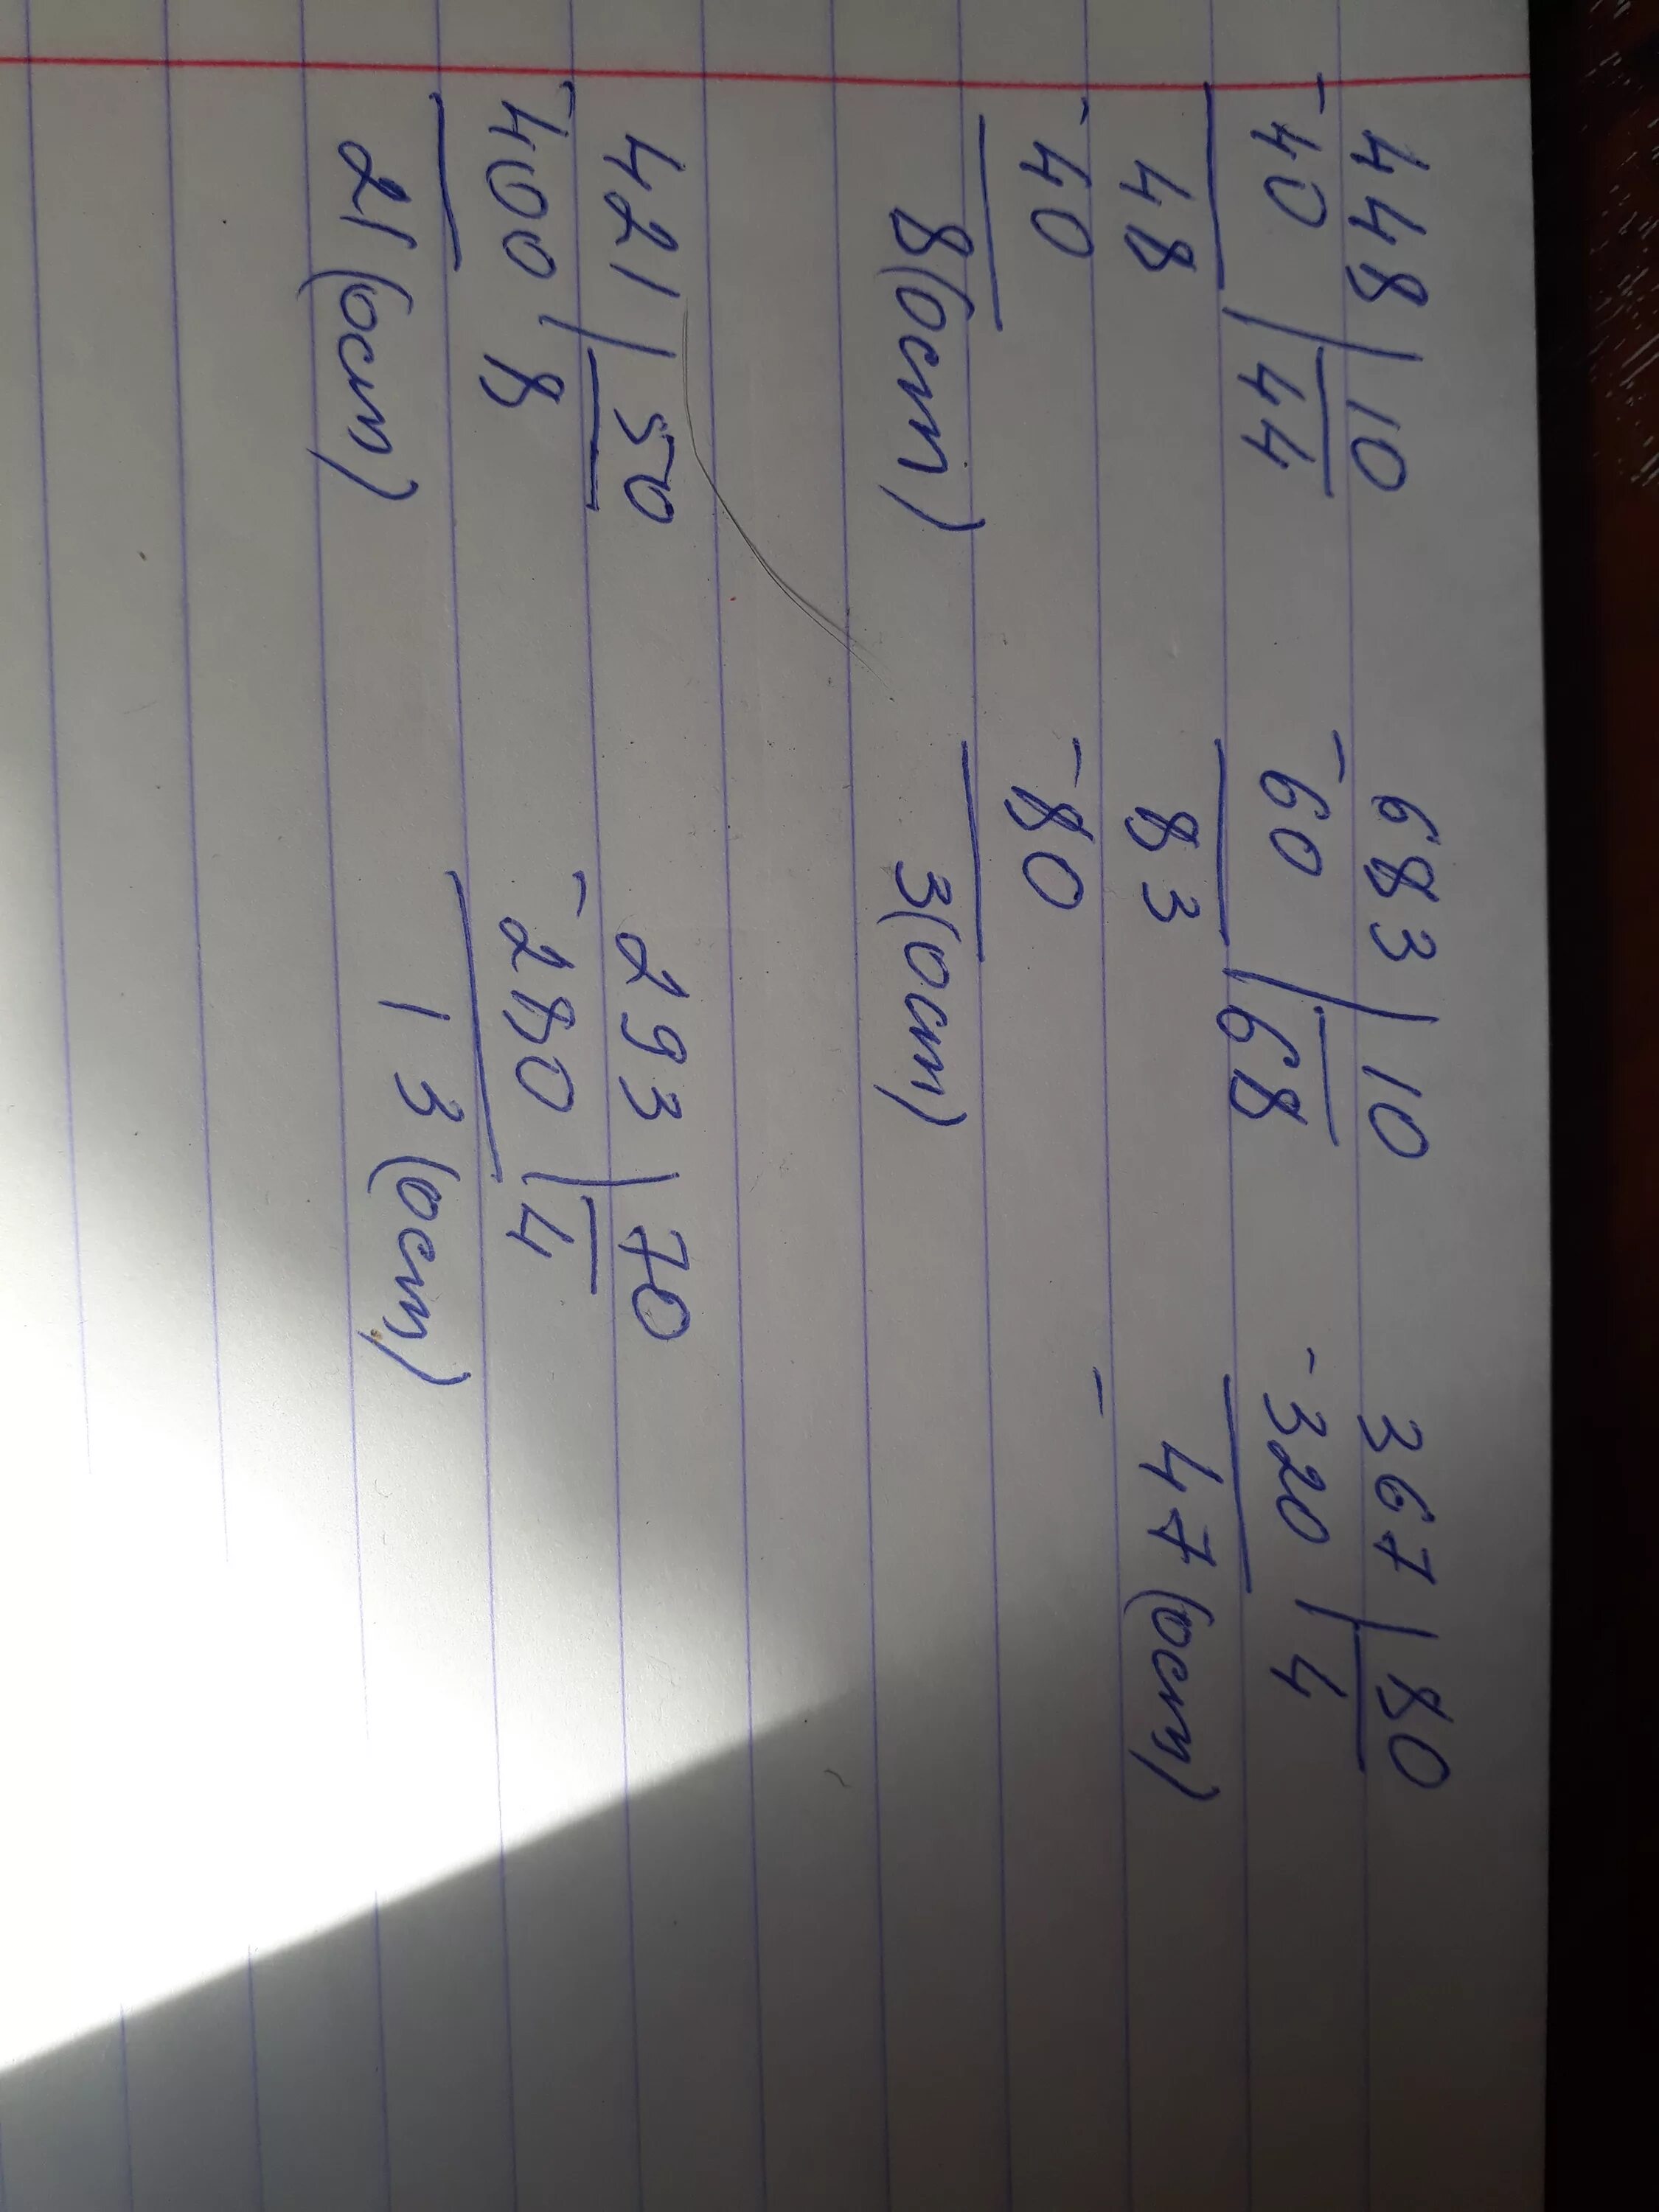 448 | 10 683 | 10 367 | 80
-40 | 44 -60 | 68 -320 | 4
48 83 47 (ост)
-40 -80 -
8 (ост) 3 (ост)
421 | 50 293 | 70
-400 | 8 -280 | 4
21 (ост) 13 (ост)